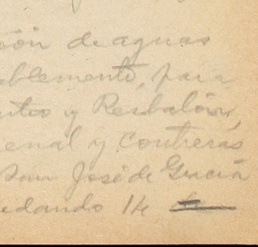 ción de aguas
eblemente, para
y Resbalón,
enal y Contreras
San José de Gracia
edando 14